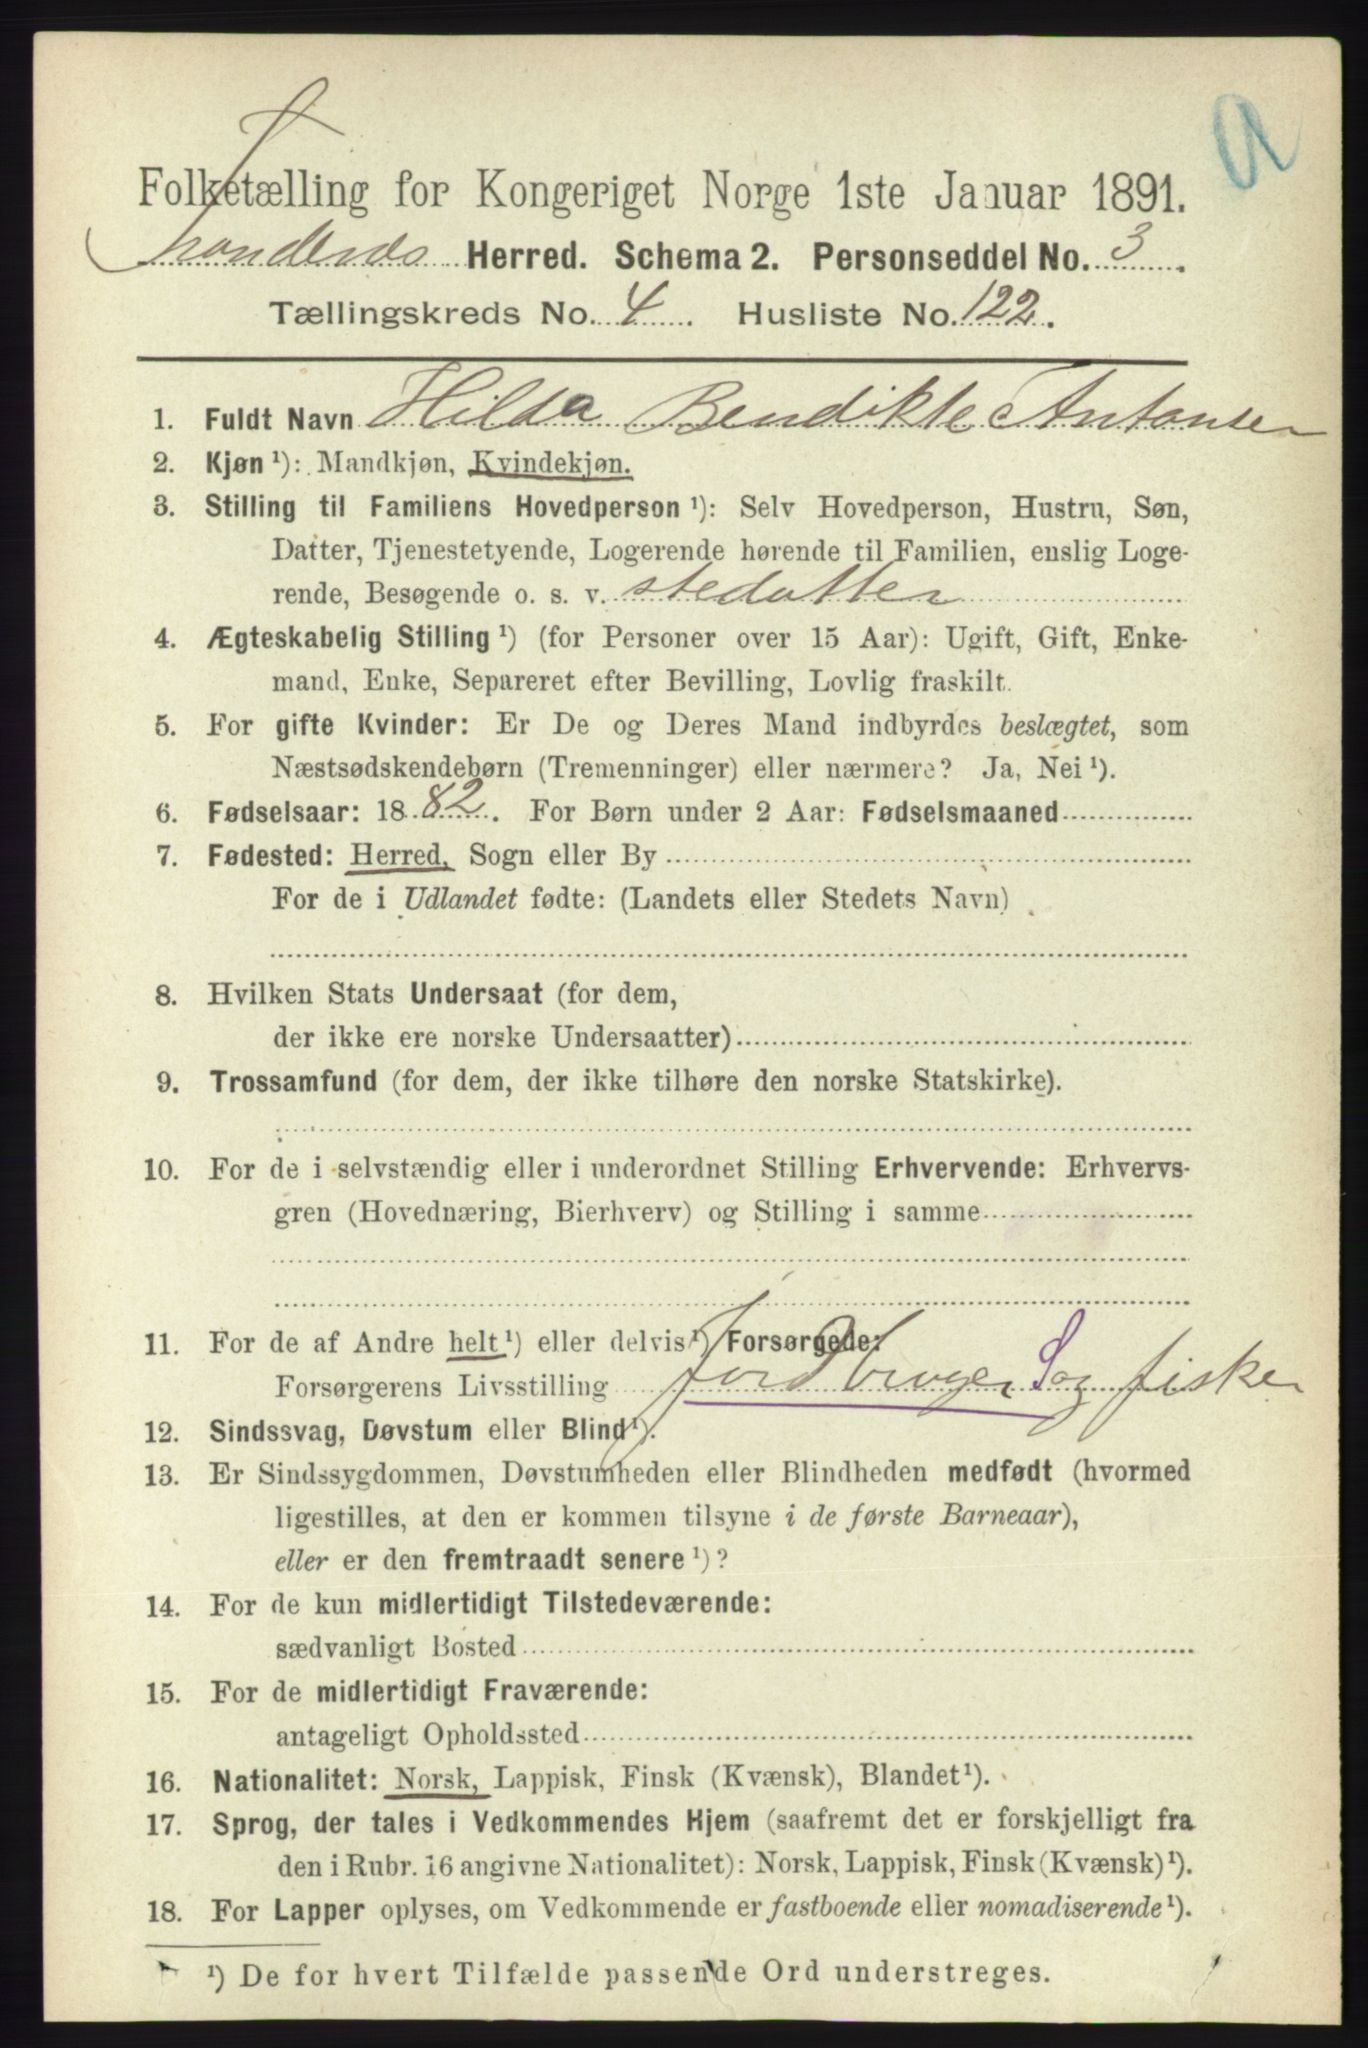 a
Folketælling for Kongeriget Norge 1ste Januar 1891.
Trondenes Herred. Schema 2. Personseddel No. 3.
Tællingskreds No. 4. Husliste No. 122.
1. Fuldt Navn Hilda Bendikte Antonsen
2. Kjøn ¹): Mandkjøn, Kvindekjøn.
3. Stilling til Familiens Hovedperson ¹): Selv Hovedperson, Hustru, Søn,
Datter, Tjenestetyende, Logerende hørende til Familien, enslig Loge-
rende, Besøgende o. s. v. stedatter
4. Ægteskabelig Stilling ¹) (for Personer over 15 Aar): Ugift, Gift, Enke-
mand, Enke, Separeret efter Bevilling, Lovlig fraskilt.
5. For gifte Kvinder: Er De og Deres Mand indbyrdes beslægtet, som
Næstsødskendebørn (Tremenninger) eller nærmere? Ja, Nei ¹).
6. Fødselsaar: 1882. For Børn under 2 Aar: Fødselsmaaned
7. Fødested: Herred, Sogn eller By
For de i Udlandet fødte: (Landets eller Stedets Navn)
8. Hvilken Stats Undersaat (for dem,
der ikke ere norske Undersaatter)
9. Trossamfund (for dem, der ikke tilhøre den norske Statskirke).
10. For de i selvstændig eller i underordnet Stilling Erhvervende: Erhvervs-
gren (Hovednæring, Bierhverv) og Stilling i samme
11. For de af Andre helt ¹) eller delvis ¹) Forsørgede:
Forsørgerens Livsstilling Jordbruger S og fisker
12. Sindssvag, Døvstum eller Blind ¹).
13. Er Sindssygdommen, Døvstumheden eller Blindheden medfødt (hvormed
ligestilles, at den er kommen tilsyne i de første Barneaar),
eller er den fremtraadt senere ¹)?
14. For de kun midlertidigt Tilstedeværende:
sædvanligt Bosted
15. For de midlertidigt Fraværende:
antageligt Opholdssted
16. Nationalitet: Norsk, Lappisk, Finsk (Kvænsk), Blandet ¹).
17. Sprog, der tales i Vedkommendes Hjem (saafremt det er forskjelligt fra
den i Rubr. 16 angivne Nationalitet): Norsk, Lappisk, Finsk (Kvænsk) ¹).
18. For Lapper oplyses, om Vedkommende er fastboende eller nomadiserende ¹).
¹) De for hvert Tilfælde passende Ord understreges.